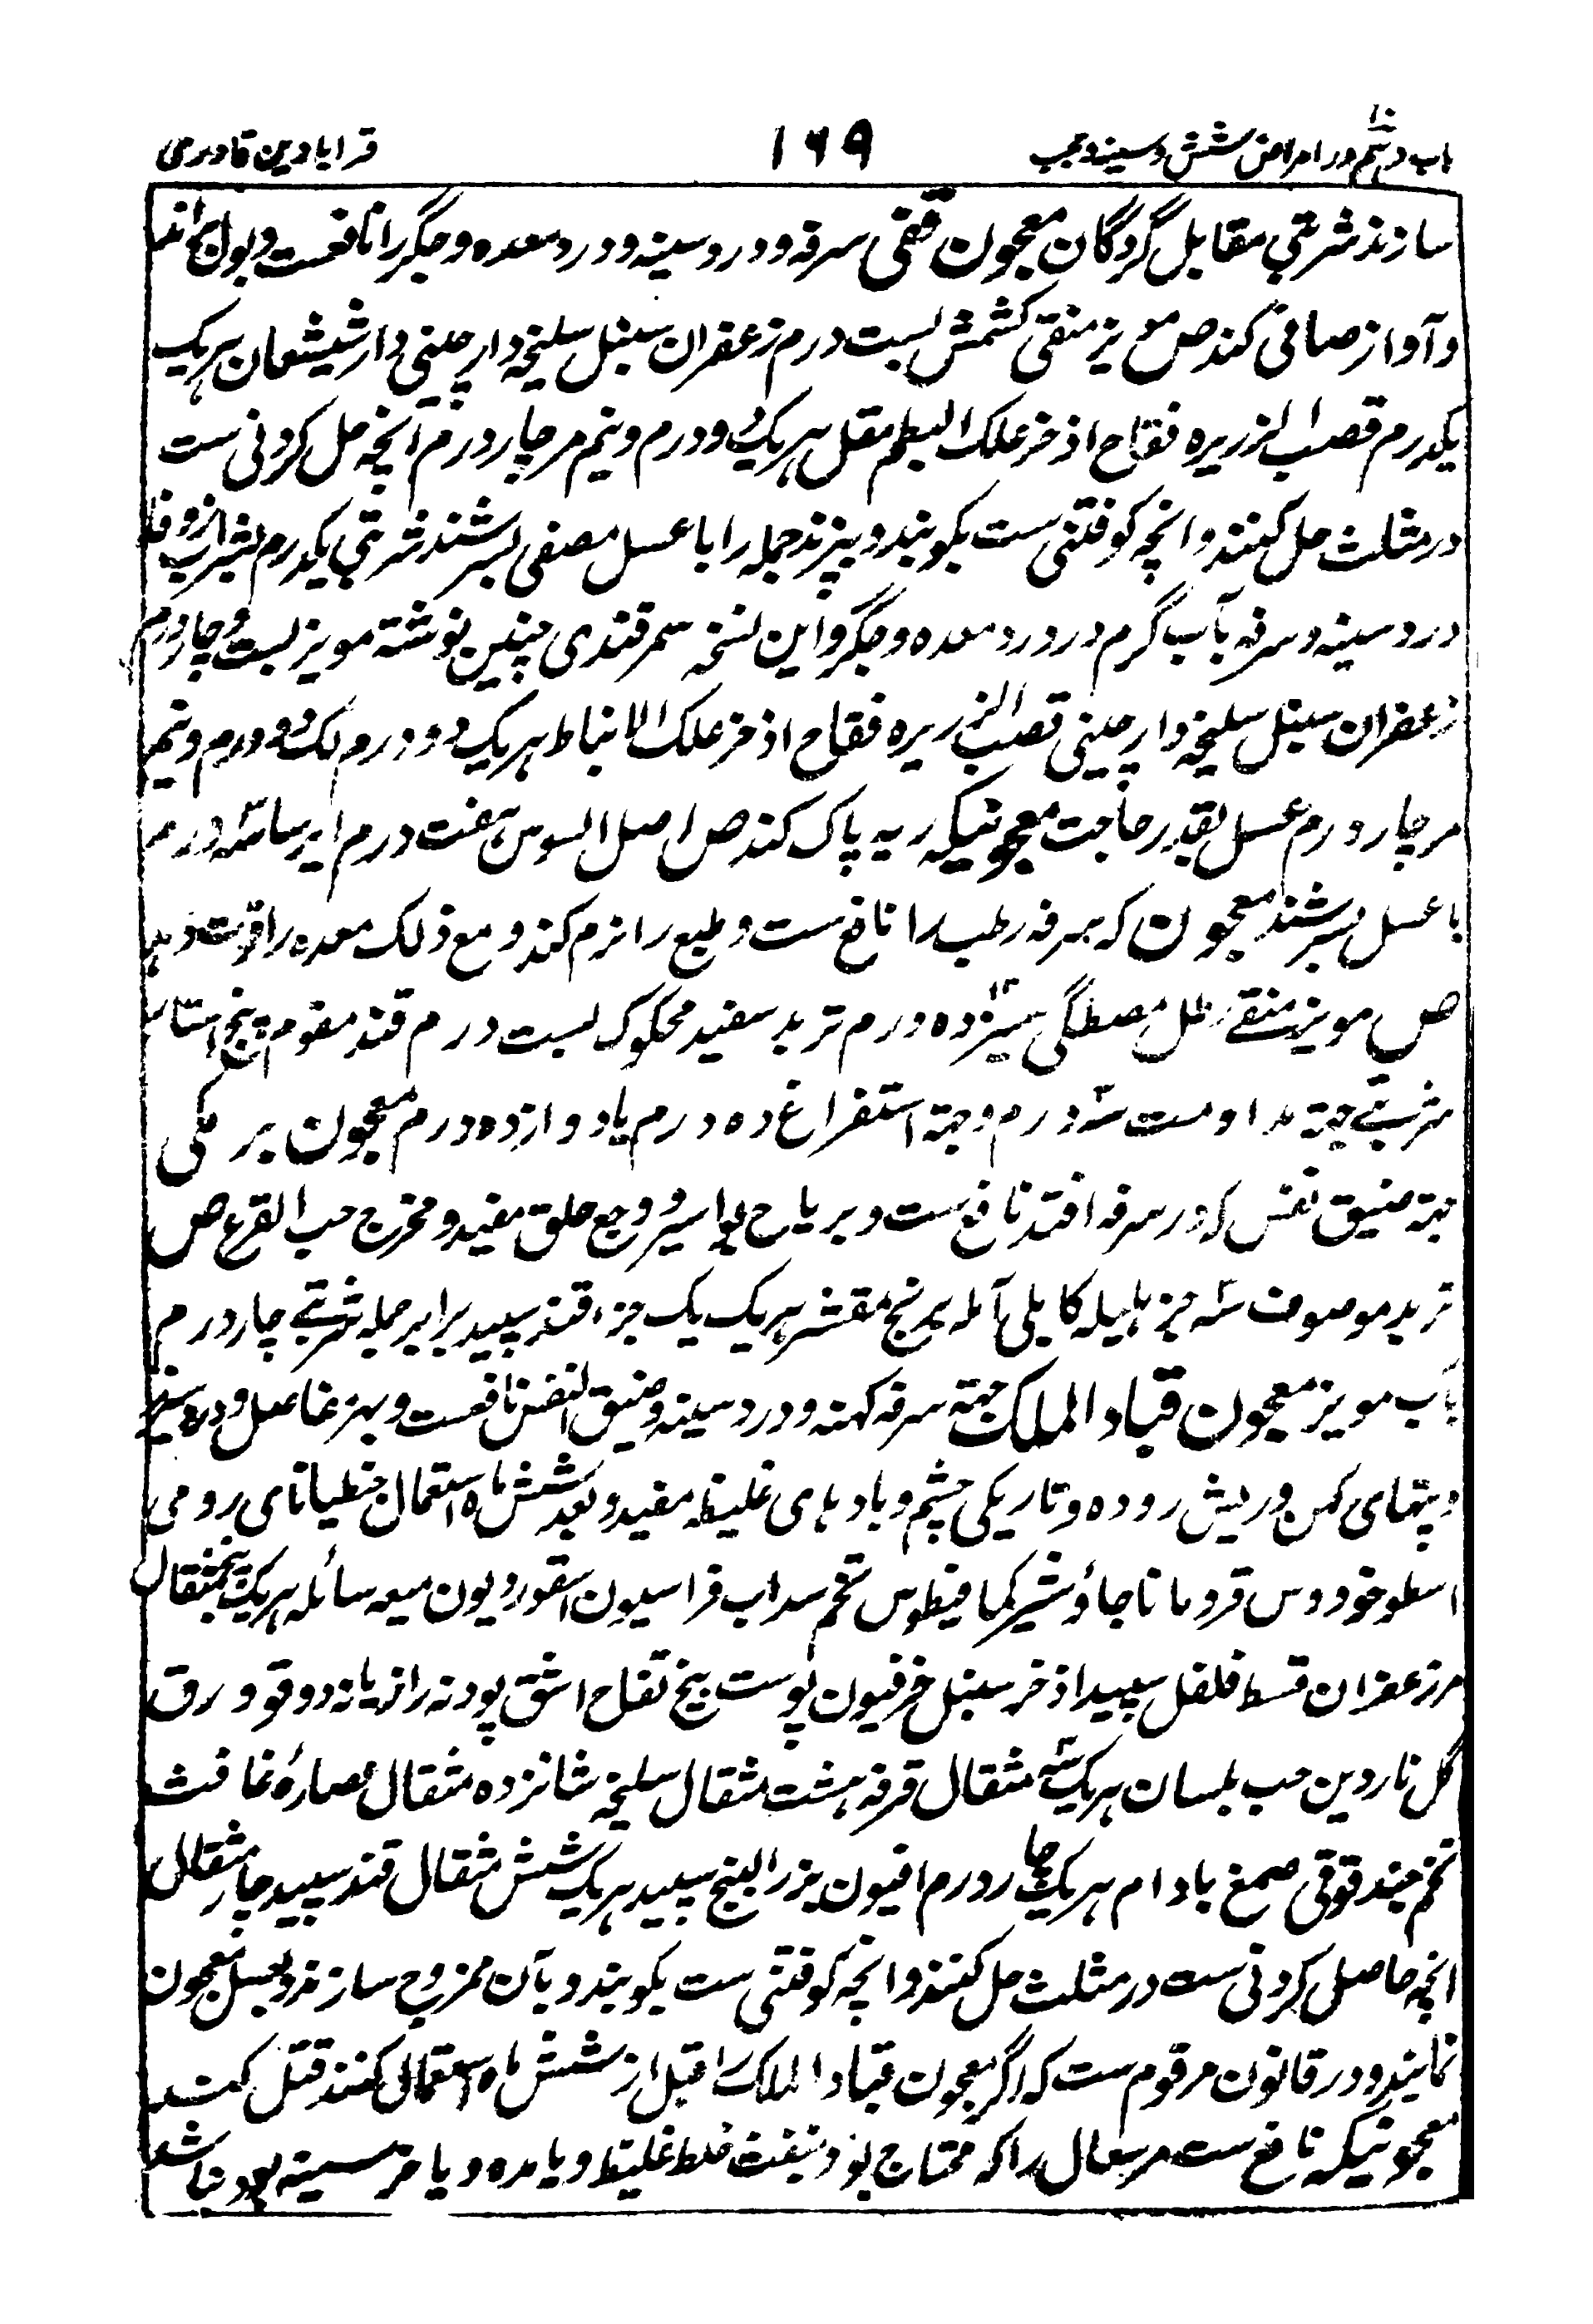 باب دهم در امراض شش و سینه و جنب ۱۶۹ قرابادین قادری
سازند شربتی مقابل گردگان معجون قفی سرفه و درد سینه و درد معده و جگر را نافعست و بول براند
و آواز صافی کند ص مویز منقی کشمش بست درم زعفران سنبل سلیخه دارچینی دارشیشعان هریک
یکدرم قصب الزریره فقاح اذخر علک البطم مقل هریک دو درم و نیم مر چار درم آنچه حل کردنی ست
در مثلث حل کنند و انچه کوفتنی ست بکوبند و بپزند جمله را با عسل مصفی بسرشند شربتی یکدرم بشراب زوفا
درد سینه و سرفه بآب گرم در درد معده و جگر و این نسخه سمرقندی چنین نوشته مویز بست و چار درم
زعفران سنبل سلیخه دارچینی قصب الزریره فقاح اذخر علک الانباط هریک دو درم لک دو درم و نیم
مر چار درم عسل بقدر حاجت معجونیکه ریه پاک کند ص اصل السوس هفت درم ایرسا سه درم
با عسل بسرشند معجون که سرفه رطب را نافع ست و طبع را نرم کند و مع ذلک معده را قوت دهد
ص مویز منقے رطل مصطگی سیزده درم تربد سفید محکوک بست درم قند مقوم پنج استار
شربتے جهته مداومت سه درم و جهته استفراغ ده درم یا دوازده درم معجون برمکی
جهته ضیق نفس که در سرفه افتد نافع ست و بریاح بواسیر و وجع حلق مفید و مخرج حب القرع ص
تربد موصوف سه جز هلیله کابلی آمله برنج مقشر هریک یک جزء قند سپید برابر جمله شربتے چار درم
بآب مویز معجون قباد الملک جهته سرفه کهنه و درد سینه و ضیق النفس نافعست و بهر مفاصل و درد سپرز
و تپهای کهن و ریش روده و تاریکی چشم و بادهای غلیظه مفید و بعد شش ماه استعمال جنطیانای رومی
اسطوخودوس قردمانا جاؤشیر کمافیطوس تخم سداب فراسیون اسقوردیون میعه سائله هریک پنجمثقال
مر زعفران قسط فلفل سپید اذخر سنبل فرفیون پوست بیخ تفاح اشق پودنه رازیانه دوقو ورق
گل ناردین حب بلسان هریک سه مثقال قرفه هشت مثقال سلیخه شانزده مثقال عصارهٔ غافث
تخم حندقوقی صمغ بادام هریک چار درم افیون بزر البنج سپید هریک شش مثقال قند سپید چار مثقال
انچه حاصل کردنی ست در مثلث حل کنند و انچه کوفتنی ست بکوبند و بآن ممزوج سازند و بعسل معجون
نمایند و در قانون مرقوم ست که اگر معجون قباد الملک را قبل از شش ماه استعمال کنند قتل کند
معجونیکه نافع ست مر سعال را که محتاج بود بنفث خلط غلیظ و یا مده و یا در سینه بود